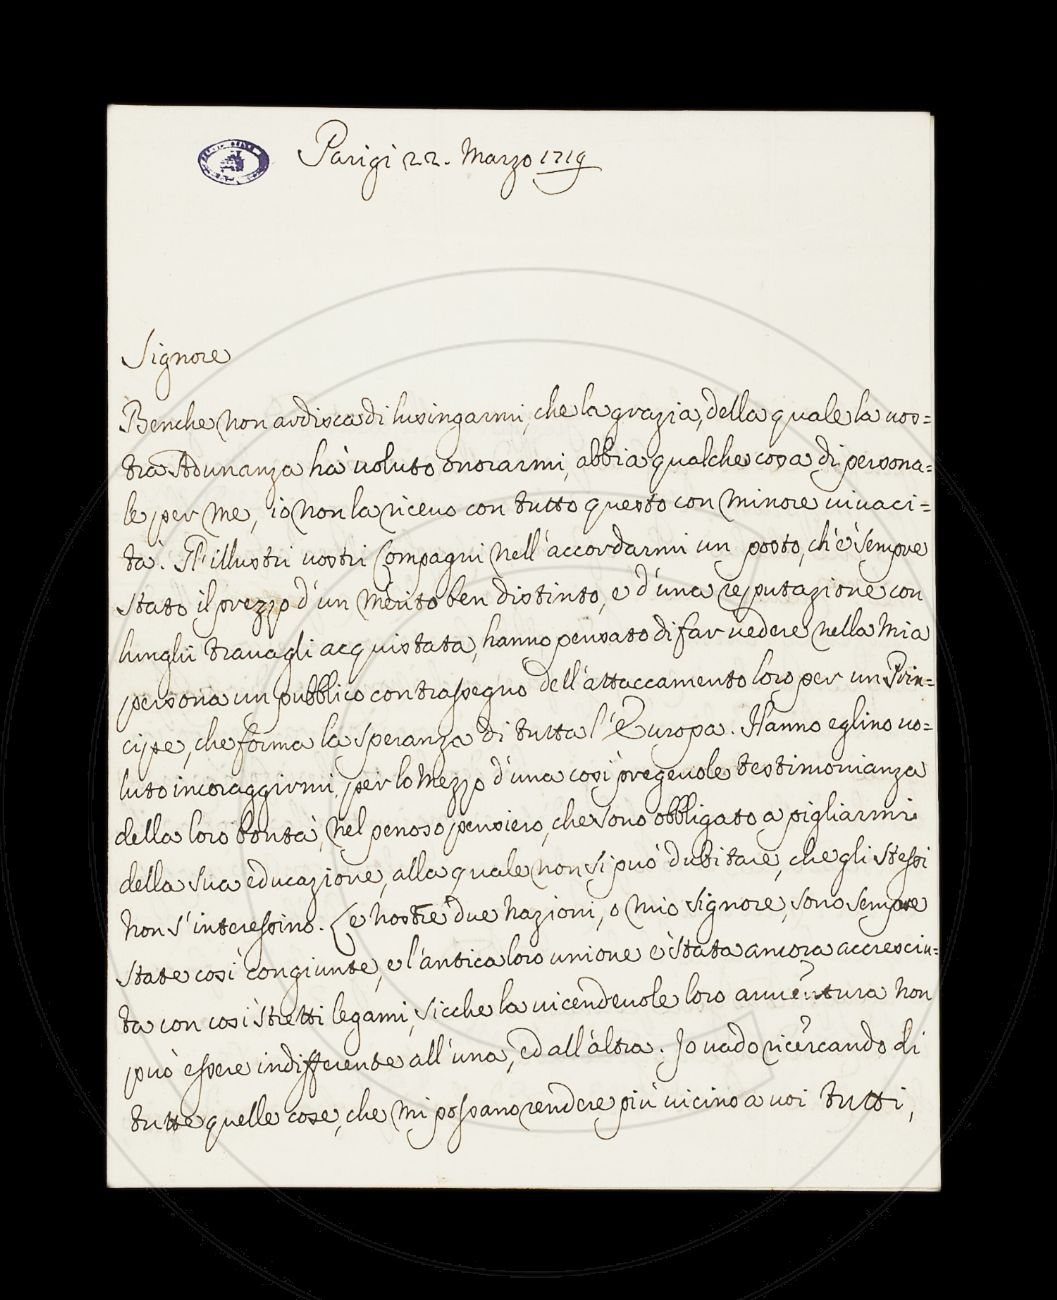 Parigi 22. Marzo 1719
Signore
Benche non ardisca di lusingarmi, che la grazia, della quale la vos=
tra Adunanza hà voluto onorarmi, abbia qualche cosa di persona=
le per me, io non la ricevo con tutto questo con minore vivaci=
tà. Gl'illustri vostri Compagni nell'accordarmi un posto, ch'è sempre
stato il prezzo d'un merito ben distinto, e d'una reputazione con
lunghi travagli acquistata, hanno pensato di far vedere nella mia
persona un pubblico contrassegno dell'attaccamento loro per un Prin=
cipe, che forma la speranza di tutta l'Europa. Hanno eglino vo=
luto incoraggirmi, per lo mezzo d'una così pregevole testimonianza
della loro bontà, nel penoso pensiero, che sono obbligato a pigliarmi
della sua educazione, alla quale non si può dubitare, che gli stessi
non s'interessino. Le nostre due nazioni, o mio Signore, sono sempre
state così congiunte, e l'antica loro unione è stata ancora accresciu=
ta con così stretti legami, sicche la vicendevole loro avventura non
può essere indifferente all'una, ed all'altra. Io vado ricercando di
tutte quelle cose, che mi possano rendere più vicino a voi tutti,